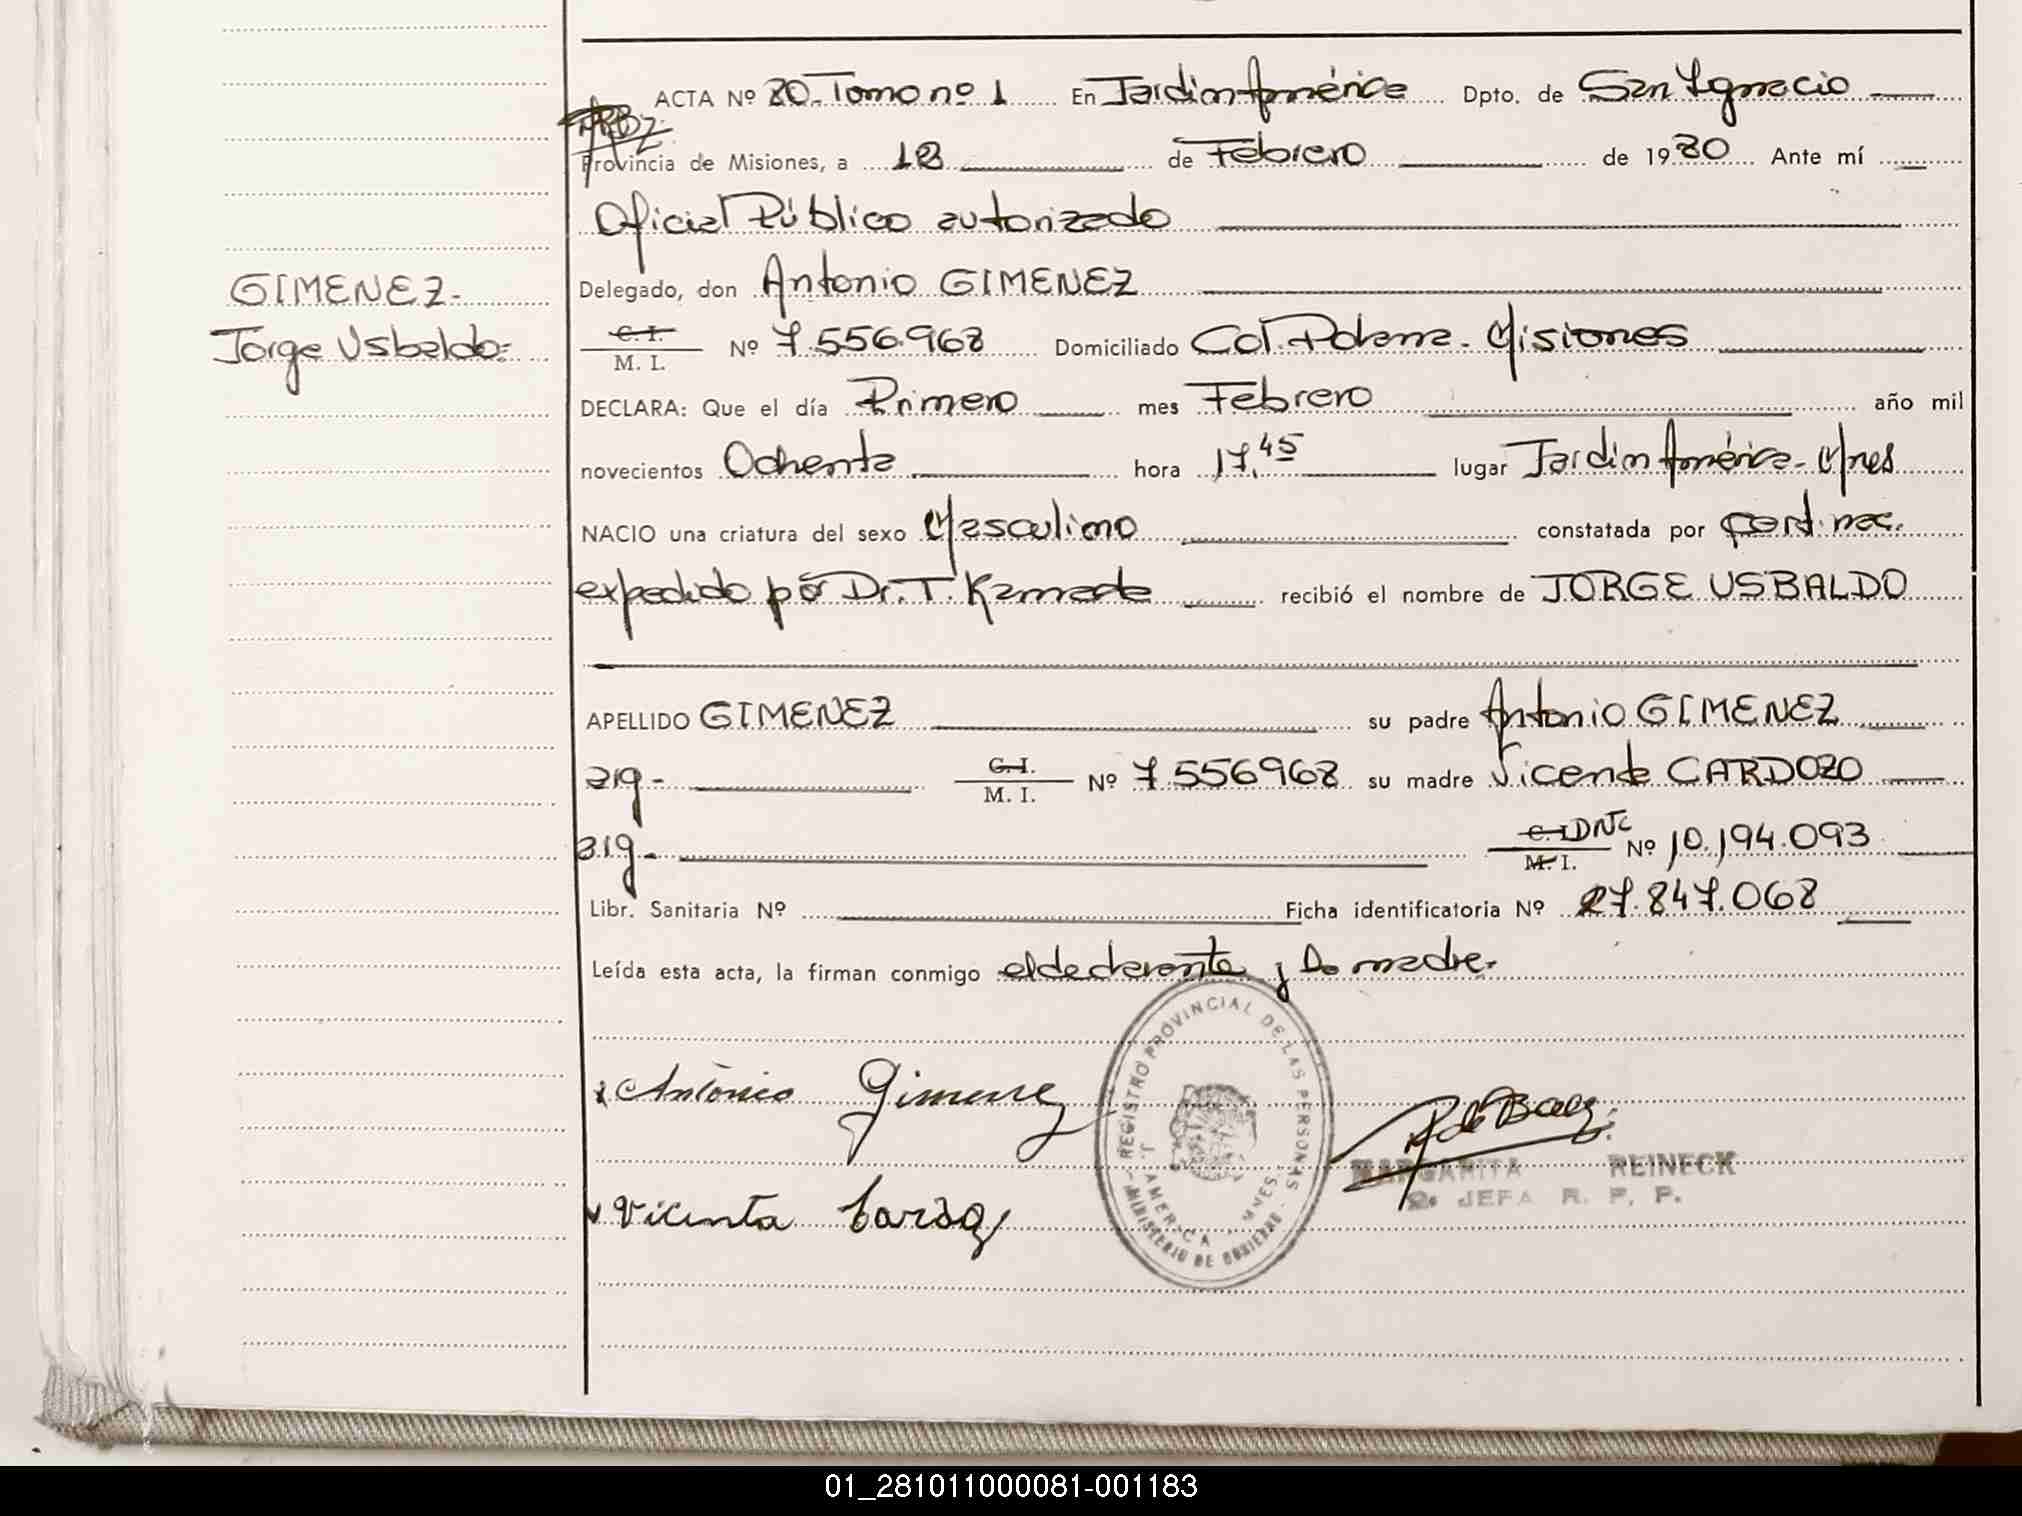 ACTA Nº 80. Tomo nº 1 En Jardín América Dpto. de San Ignacio
Provincia de Misiones, a 18 de Febrero de 1980 Ante mí
Oficial Público autorizado
GIMENEZ. Delegado, don Antonio GIMENEZ
Jorge Usbaldo= C. I. M. I. Nº 7.556.968 Domiciliado Col. Polana. Misiones
DECLARA: Que el día Primero mes Febrero año mil
novecientos Ochenta hora 17.45 lugar Jardín América- Mnes
NACIO una criatura del sexo Masculino constatada por cert. nac.
expedido por Dr. T. Kameda recibió el nombre de JORGE USBALDO
APELLIDO GIMENEZ su padre Antonio GIMENEZ
arg- C. I. M. I. Nº 7.556968 su madre Vicenta CARDOZO
arg- C. I. DNI M. I. Nº 10.194.093
Libr. Sanitaria Nº Ficha identificatoria Nº 27.847.068
Leída esta acta, la firman conmigo el declarante y la madre.
Antonio Gimenez
REGISTRO PROVINCIAL DE LAS PERSONAS
J. AMERICA MNES.
MINISTERIO DE GOBIERNO
R de Baez
MARGARITA REINECK
2a JEFA R. P. P.
Vicenta
01_281011000081-001183